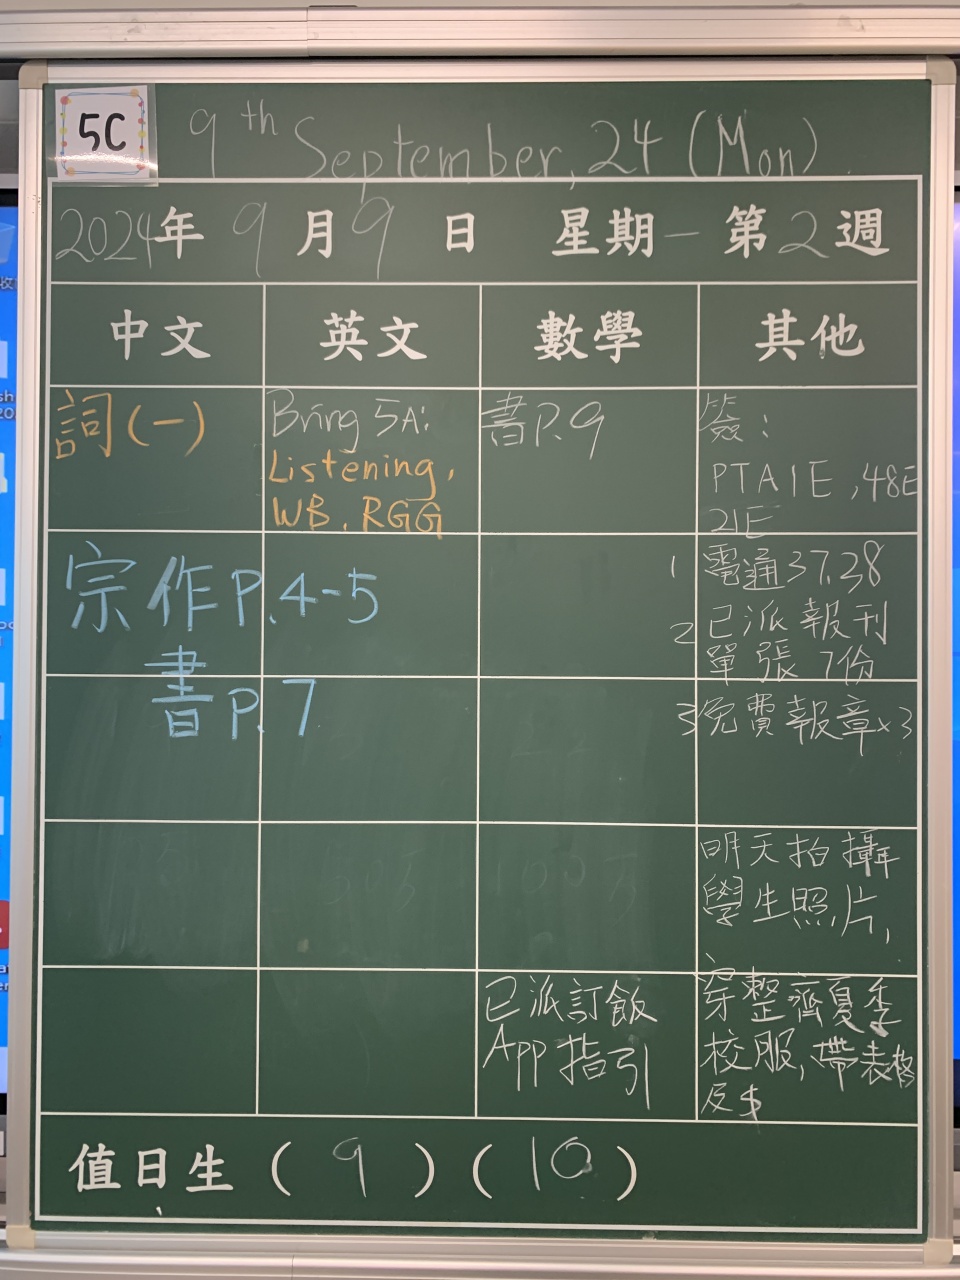 5C
9th September, 24 (Mon)
2024年 9月9日 星期一 第2週
中文 英文 數學 其他
詞(一)
Bring 5A:
Listening,
WB, RGG
書P.9
簽:
PTA1E, 48E
21E
宗作P.4-5
書P.7
1 電通37.38
2 已派報刊
單張 7份
3 免費報章x3
明天拍攝
學生照片,
已派訂飯
App指引
穿整齊夏季
校服,帶表格
及$
值日生 (9)(10)